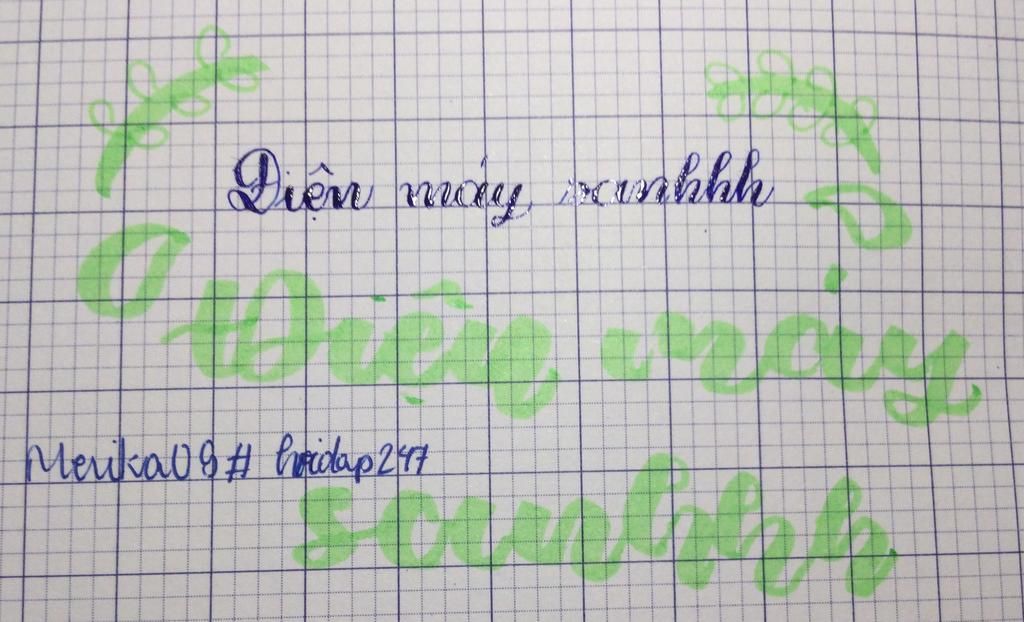 Điện máy xanhhh
Điện máy
Merika09# hoidap247
sanhhh